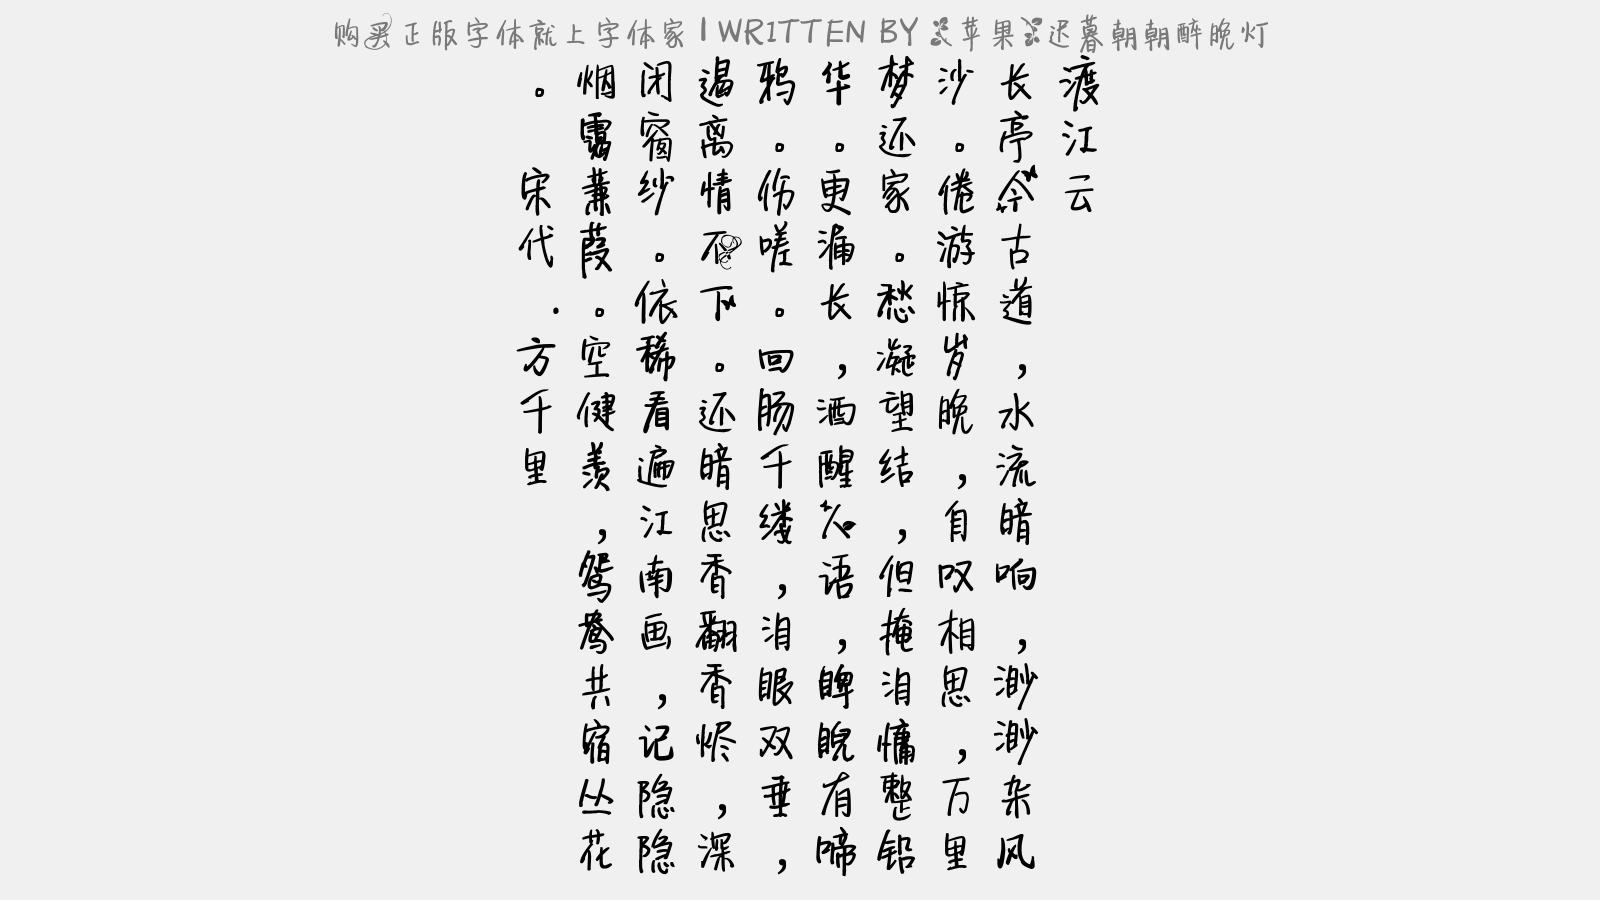 购买正版字体就上字体家 | WRITTEN BY 苹果迟暮朝朝醉晚灯
渡江云
长亭今古道，水流暗响，渺渺杂风
沙。倦游惊岁晚，自叹相思，万里
梦还家。愁凝望结，但掩泪慵整铅
华。更漏长，酒醒人语，睥睨有啼
鸦。伤嗟。回肠千缕，泪眼双垂，
遏离情不下。还暗思香翻香烬，深
闭窗纱。依稀看遍江南画，记隐隐
烟霭蒹葭。空健羡，鸳鸯共宿丛花
。
宋代.方千里